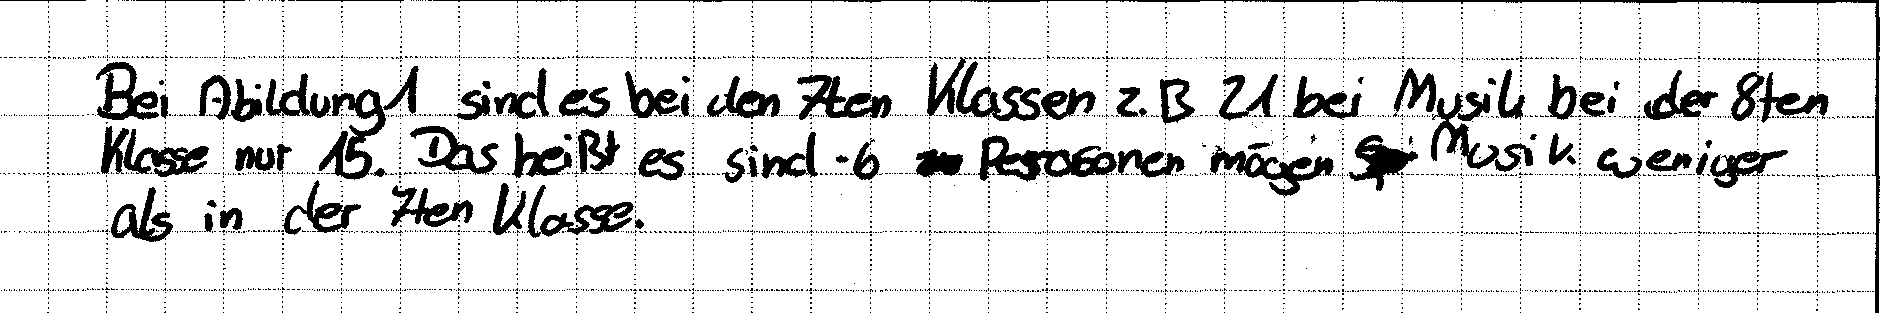 Bei Abildung 1 sind es bei den 7ten Klassen z.B 21 bei Musik bei der 8ten
Klasse nur 15. Das heißt es sind -6 Personen mögen Musik weniger
als in der 7ten Klasse.